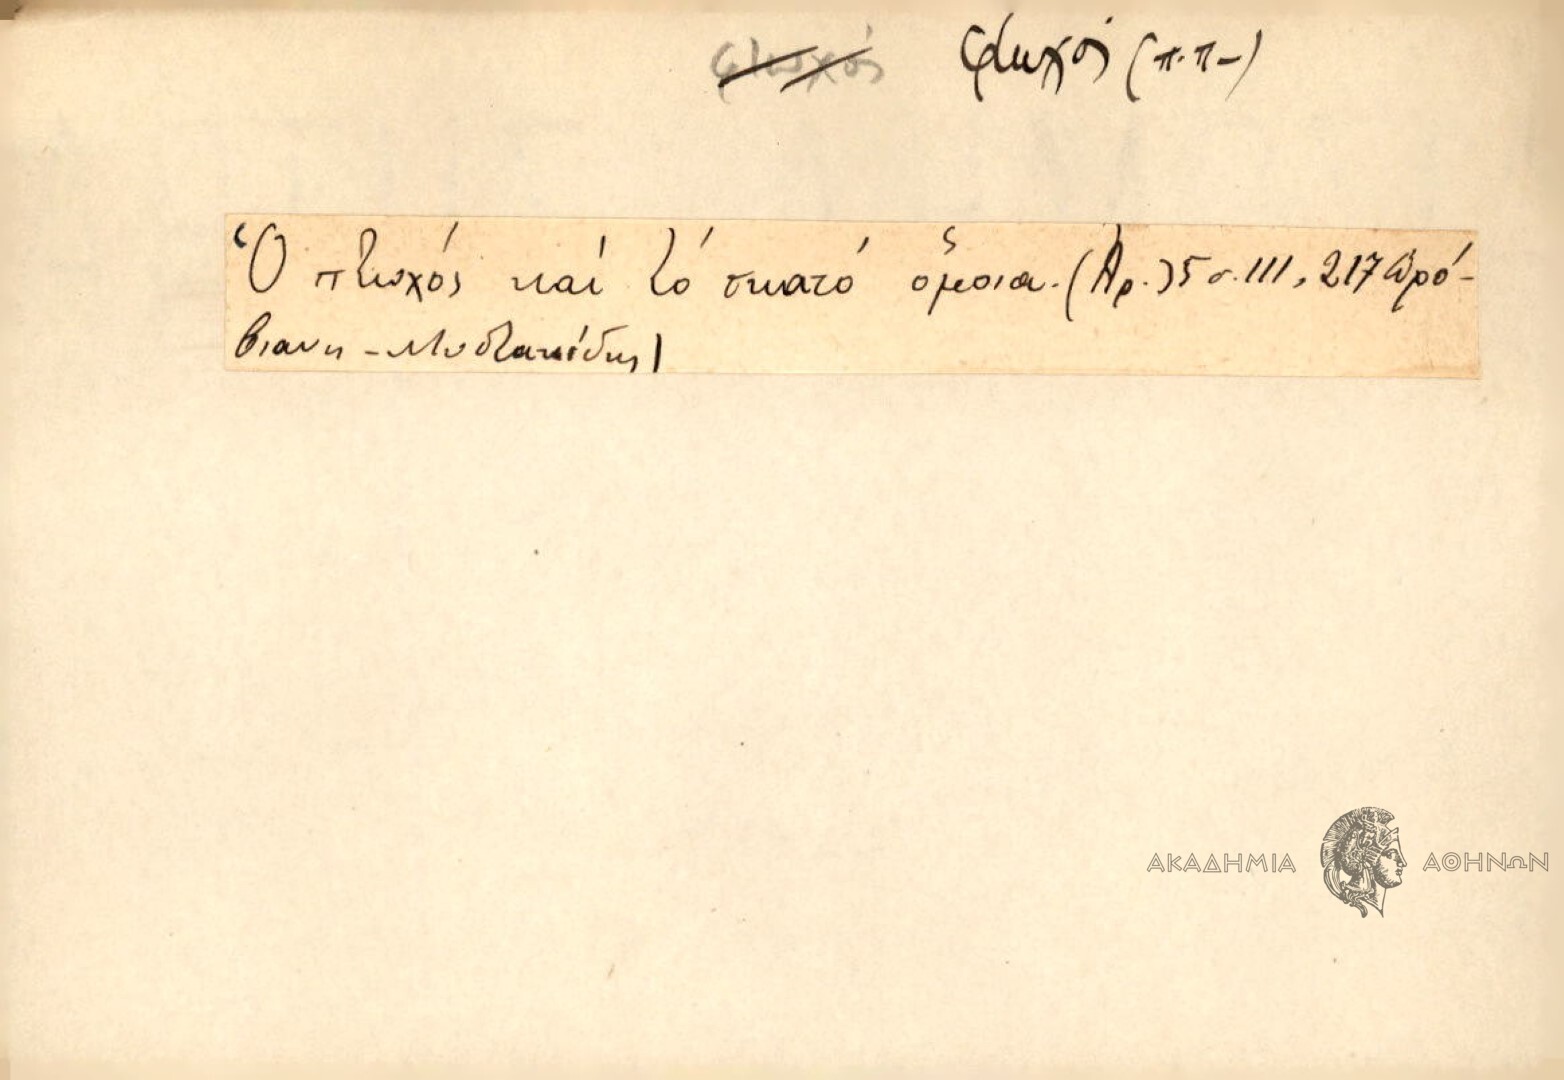 φτωχός φτωχός (π.π-)
Ὁ πτωχός καί τό σκατό ὅμοια. (Ἀρ.) 5 σ. 111, 217 Δρό-
βιανη - Μυστακίδης)
ΑΚΑΔΗΜΙΑ ΑΘΗΝΩΝ